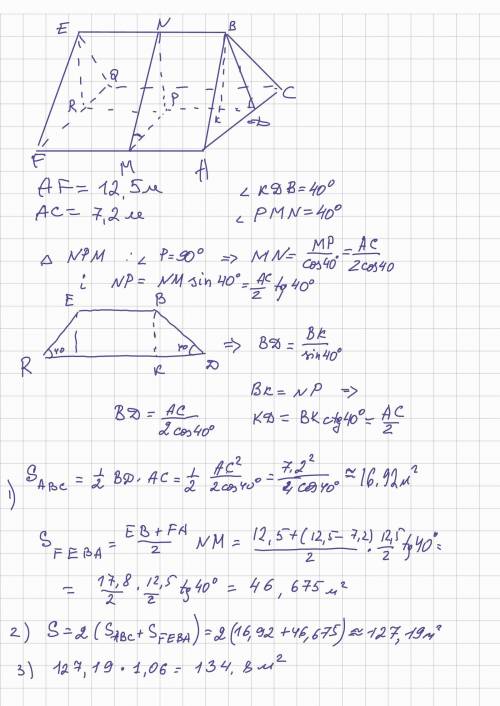 E N B
Q C
R P K D
F M A
AF = 12,5м ∠ КДВ = 40°
AC = 7,2 м ∠ PMN = 40°
△ NPM : ∠ P = 90° ⇒ MN = MP/cos40° = AC/2cos40
i NP = NM sin 40° = AC/2 tg 40°
E B
40 40 ⇒ BД = BK/sin40°
R K D
BK = NP ⇒
BД = AC/2cos40° KД = BK ctg40° = AC/2
1) S ABC = 1/2 BД · AC = 1/2 AC²/2cos40° = 7,2²/4cos40° ≈ 16,92 м²
S FEBA = EB + FA/2 NM = 12,5 + (12,5 - 7,2)/2 · 12,5/2 tg40° =
= 17,8/2 · 12,5/2 tg40° = 46,675 м²
2) S = 2 (S ABC + S FEBA) = 2 (16,92 + 46,675) ≈ 127,19 м²
3) 127,19 · 1,06 = 134,8 м²